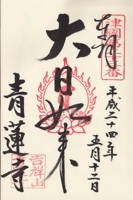 奉拝
平成二十四年
五月十二日
大日如来
青蓮寺
吉祥山